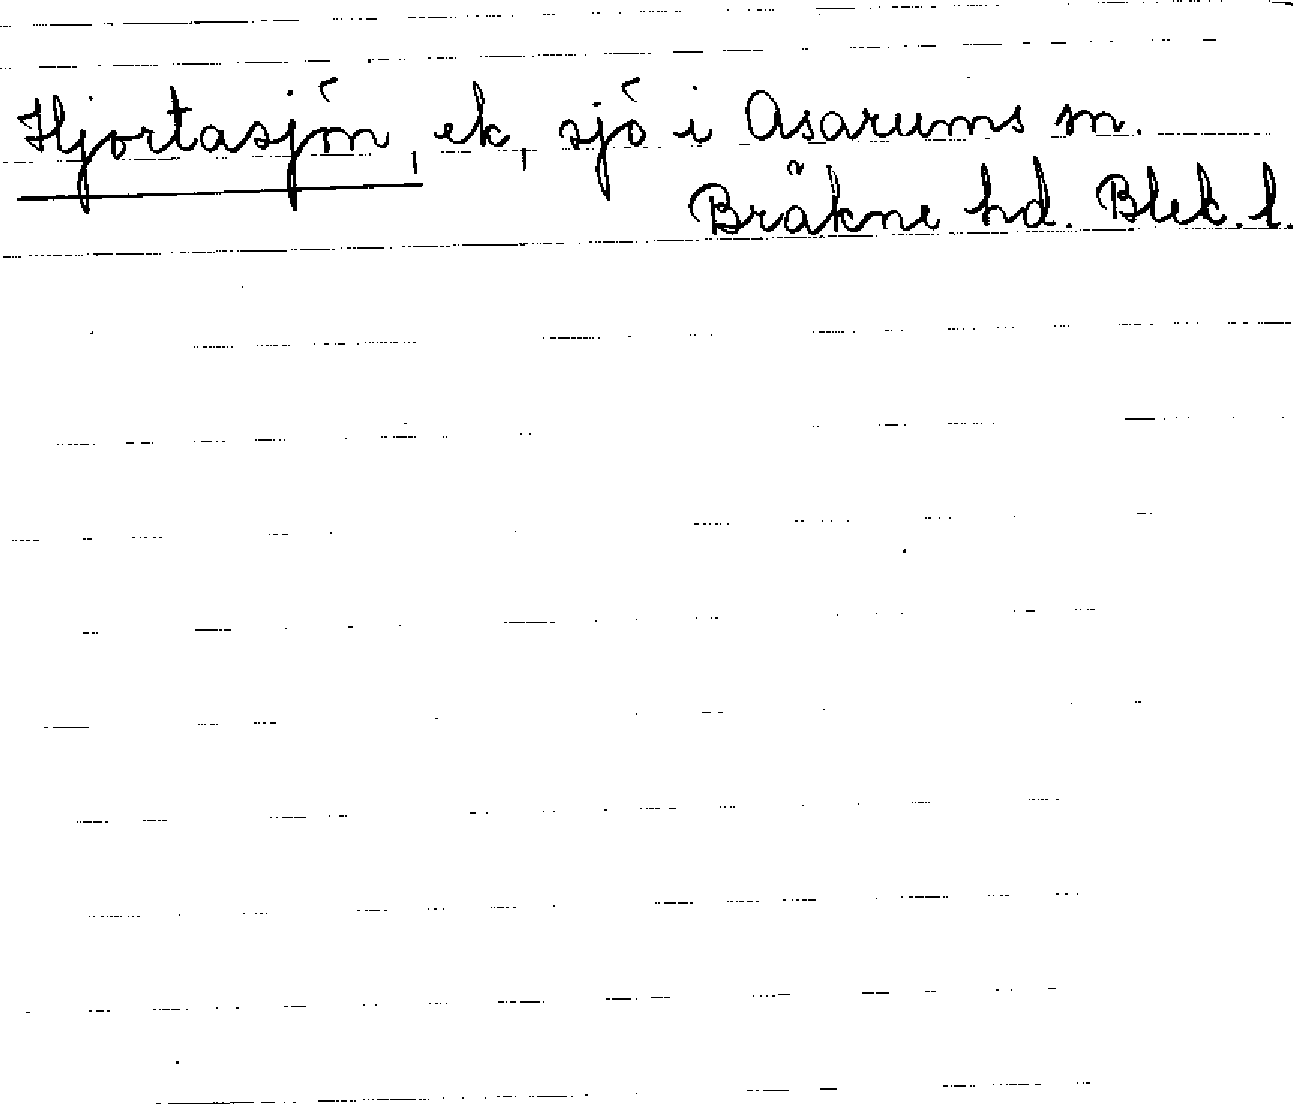 Hjortasjön, ek, sjö i Asarums sn.
Bräkne hd. Blek. l.